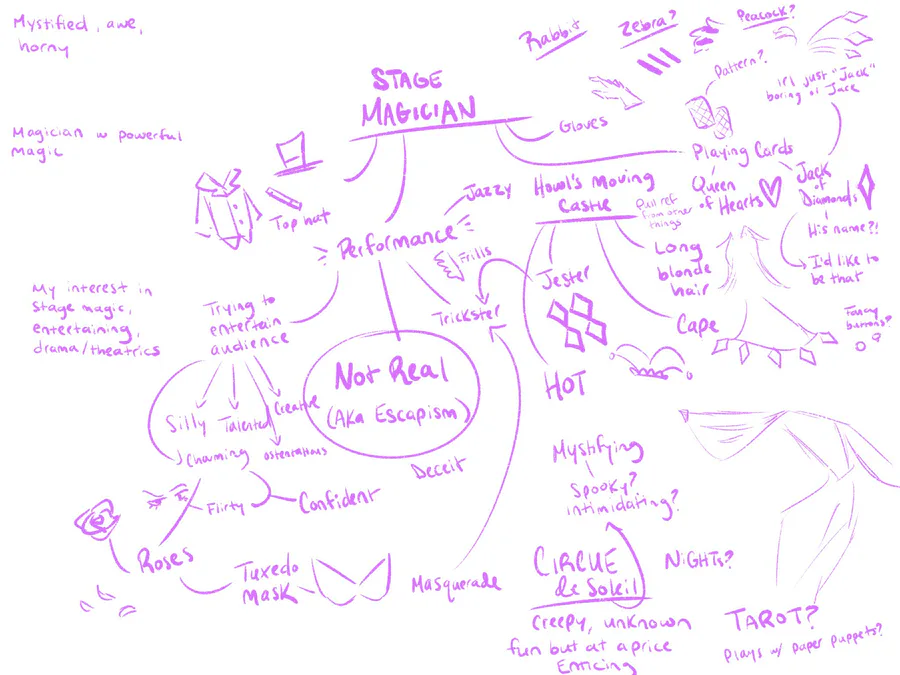 Mystified, awe,
horny
Rabbit
Zebra?
Peacock?
STAGE
MAGICIAN
Pattern?
"Jack"
boring of Jack
Gloves
Magician w powerful
magic
Playing Cards
Top hat
Jazzy
Howl's Moving
Castle
Pull ref
from other
things
Queen
of Hearts
Jack
of
Diamonds
His name?!
I'd like to
be that
Performance
Frills
Long
blonde
hair
Jester
My interest in
stage magic,
entertaining,
drama/theatrics
Trying to
entertain
audience
Trickster
Cape
Fancy
buttons?
Not Real
(AKA Escapism)
HOT
Silly
Talented
Creative
Charming
Ostentatious
Deceit
Flirty
Confident
Mystifying
Spooky?
intimidating?
Roses
Tuxedo
Mask
Masquerade
CIRCUE
de Soleil
NIGHTs?
Creepy, unknown
fun but at a price
Enticing
TAROT?
Plays w/ paper puppets?